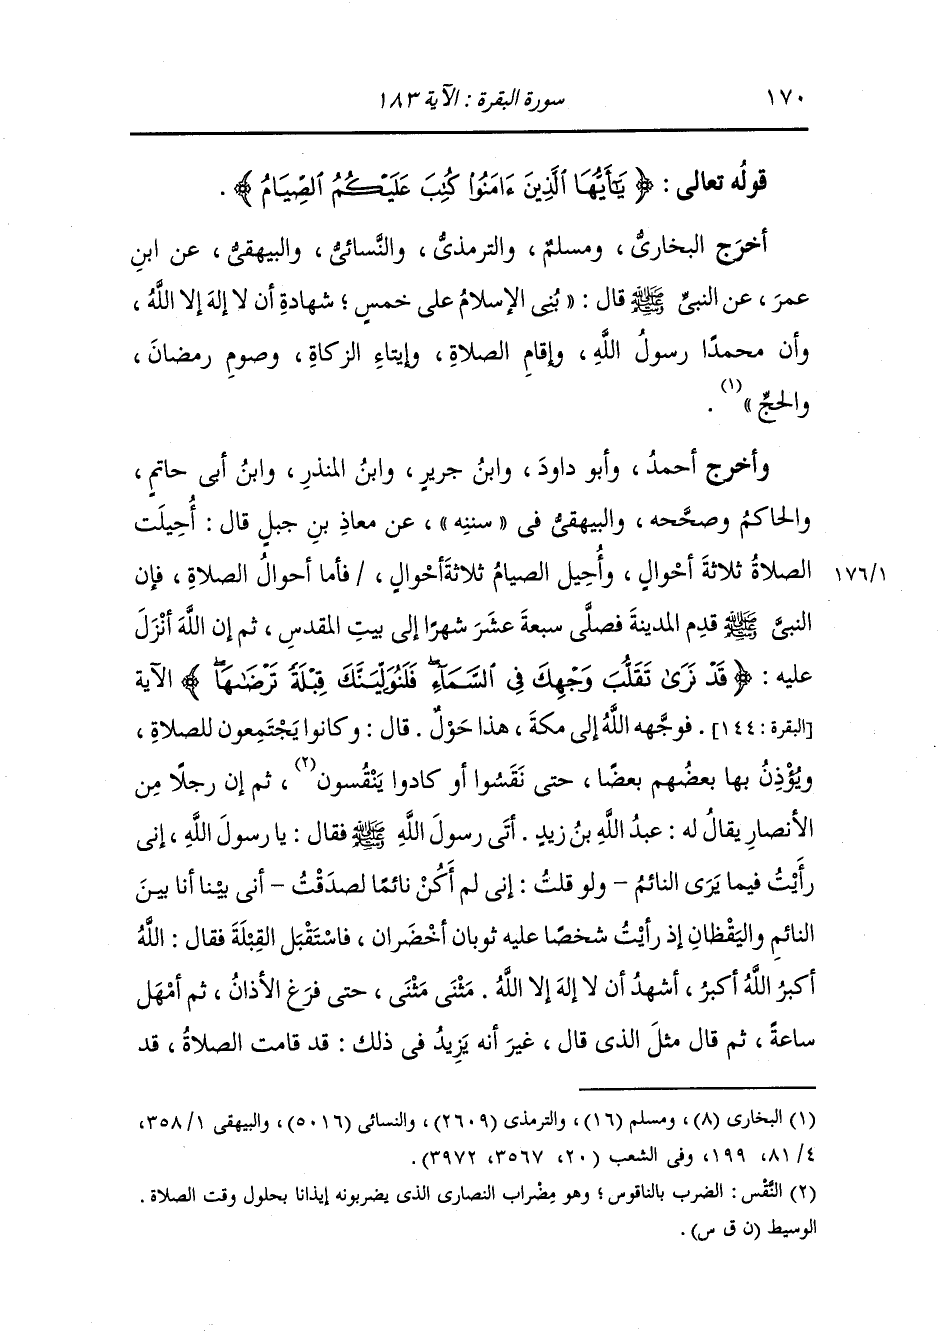 ١٧٠ سورة البقرة : الآية ١٨٣
قولُه تعالى : ﴿ يَٰٓأَيُّهَا ٱلَّذِينَ ءَامَنُوا۟ كُتِبَ عَلَيْكُمُ ٱلصِّيَامُ ﴾ .
أخرَج البخاريُّ ، ومسلمٌ ، والترمذيُّ ، والنَّسائيُّ ، والبيهقيُّ ، عن ابنِ
عمرَ ، عن النبيِّ ﷺ قال : « بُنِى الإسلامُ على خمسٍ ؛ شهادةِ أن لا إلهَ إلا اللَّهُ ،
وأن محمدًا رسولُ اللَّهِ ، وإقامِ الصلاةِ ، وإيتاءِ الزكاةِ ، وصومِ رمضانَ ،
والحجِّ »(١) .
وأخرج أحمدُ ، وأبو داودَ ، وابنُ جريرٍ ، وابنُ المنذرِ ، وابنُ أبى حاتمٍ ،
والحاكمُ وصحَّحه ، والبيهقىُّ فى « سننِه » ، عن معاذِ بنِ جبلٍ قال : أُحِيلَت
الصلاةُ ثلاثةَ أحْوالٍ ، وأُحِيل الصيامُ ثلاثةَ أحْوالٍ ، / فأما أحوالُ الصلاةِ ، فإن ١٧٦/١
النبىَّ ﷺ قدِم المدينةَ فصلَّى سبعةَ عشَرَ شهرًا إلى بيتِ المقدسِ ، ثم إن اللَّهَ أنْزَلَ
عليه : ﴿ قَدْ نَرَىٰ تَقَلُّبَ وَجْهِكَ فِى ٱلسَّمَآءِ ۖ فَلَنُوَلِّيَنَّكَ قِبْلَةً تَرْضَىٰهَا ۚ ﴾ الآية
[البقرة : ١٤٤] . فوجَّهه اللَّهُ إلى مكةَ ، هذا حَوْلٌ . قال : وكانوا يَجْتَمِعون للصلاةِ ،
ويُؤْذِنُ بها بعضُهم بعضًا ، حتى نَقَسُوا أو كادوا يَنْقُسون(٢) ، ثم إن رجلًا مِن
الأنصارِ يقالُ له : عبدُ اللَّهِ بنُ زيدٍ . أتَى رسولَ اللَّهِ ﷺ فقال : يا رسولَ اللَّهِ ، إنى
رأَيْتُ فيما يَرَى النائمُ – ولو قلتُ : إنى لم أَكُنْ نائمًا لصدَقْتُ – أنى بيْنا أنا بينَ
النائمِ واليَقْظانِ إذ رأيْتُ شخصًا عليه ثوبان أخْضَران ، فاسْتَقْبَل القِبْلَةَ فقال : اللَّهُ
أكبرُ اللَّهُ أكبرُ ، أشهدُ أن لا إلهَ إلا اللَّهُ . مَثْنَى مَثْنَى ، حتى فرَغ الأذانُ ، ثم أمْهَل
ساعةً ، ثم قال مثلَ الذى قال ، غيرَ أنه يَزِيدُ فى ذلك : قد قامت الصلاةُ ، قد
(١) البخارى (٨) ، ومسلم (١٦) ، والترمذى (٢٦٠٩) ، والنسائى (٥٠١٦) ، والبيهقى ٣٥٨/١ ،
٨١/٤ ، ١٩٩ ، وفى الشعب (٢٠ ، ٣٥٦٧ ، ٣٩٧٢) .
(٢) النَّقْس : الضرب بالناقوس ؛ وهو مِضْراب النصارى الذى يضربونه إيذانا بحلول وقت الصلاة .
الوسيط (ن ق س) .